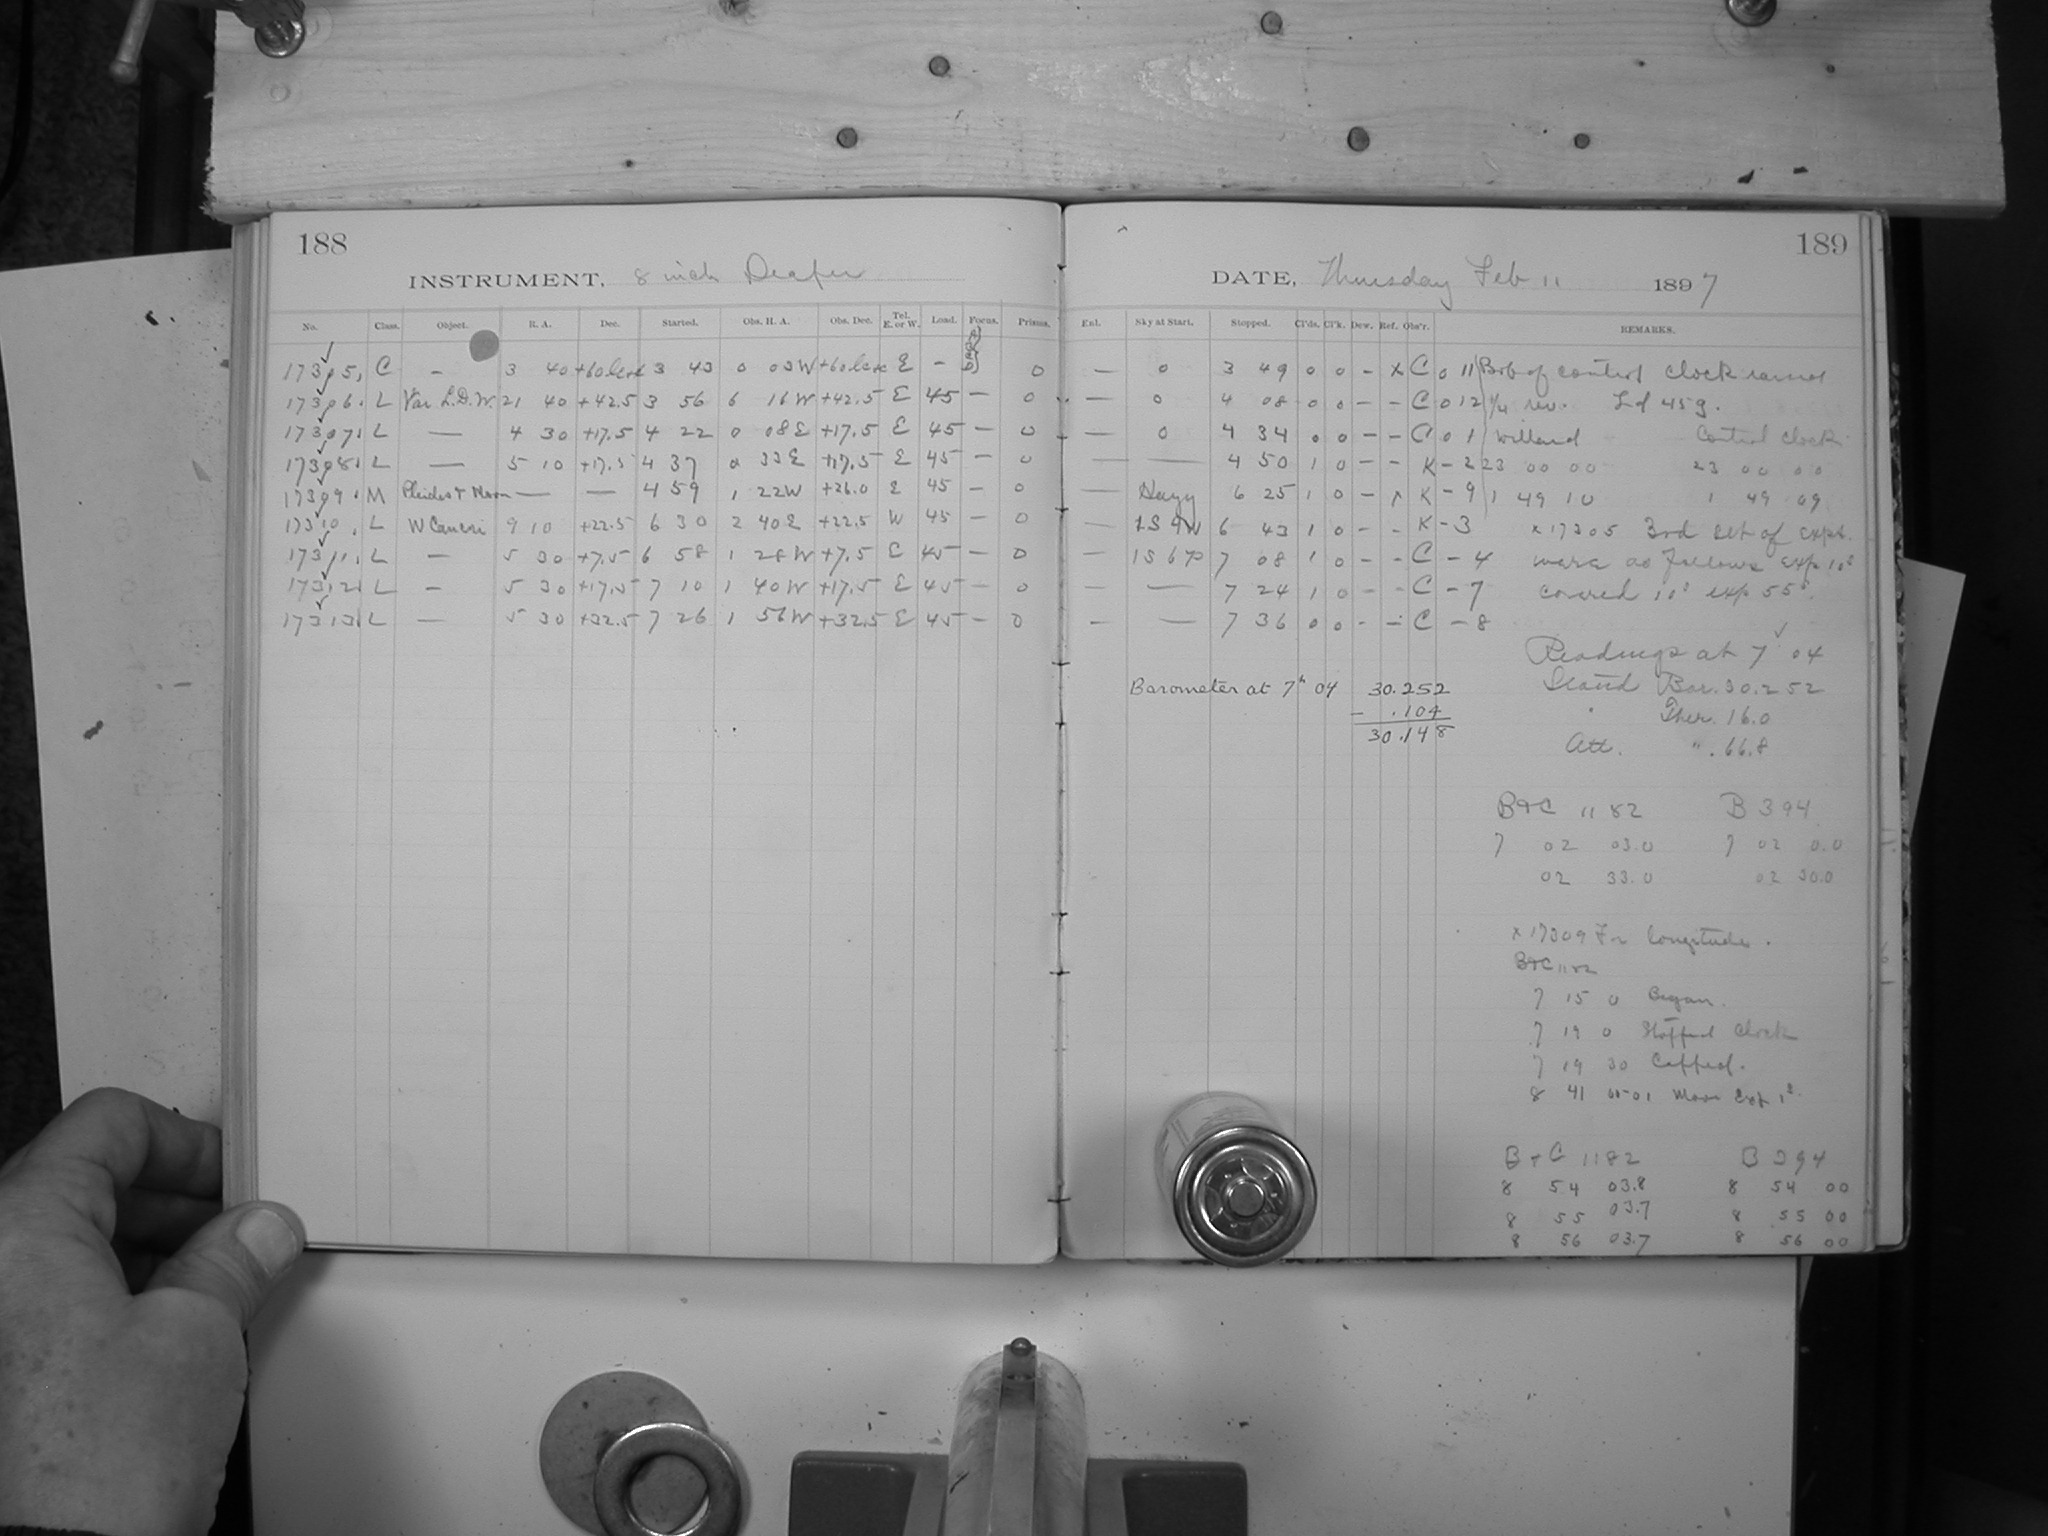 188
INSTRUMENT, 8 inch Draper
No. Class. Object. R. A. Dec. Started. Obs. H. A. Obs. Dec. Tel. E. or W. Load. Focus. Prisms.
17305 C — 3 40 +60 3 43 0 03W +60 E — 0
17306 L Var L.D.W. 21 40 +42.5 3 56 6 16W +42.5 E 45 — 0
17307 L — 4 30 +17.5 4 22 0 08E +17.5 E 45 — 0
17308 L — 5 10 +17.5 4 37 0 33E +17.5 E 45 — 0
17309 M Pleides & Moon — — 4 59 1 22W +26.0 E 45 — 0
17310 L W Cancri 9 10 +22.5 6 30 2 40E +22.5 W 45 — 0
17311 L — 5 30 +7.5 6 58 1 28W +7.5 E 45 — 0
17312 L — 5 30 +17.5 7 10 1 40W +17.5 E 45 — 0
17313 L — 5 30 +32.5 7 26 1 56W +32.5 E 45 — 0
189
DATE, Thursday Feb 11 1897
Enl. Sky at Start. Stopped. Cl'ds. Cl'k. Dew. Ref. Obs'r. REMARKS.
— 0 3 49 0 0 — x C 0 11 Bob of control clock raised
— 0 4 08 0 0 — — C 0 12 1/4 rev. Ld 45g.
— 0 4 34 0 0 — — C 0 1 Willard Control clock
— — 4 50 1 0 — — K — 2 23 00 00 23 00 00
— Hazy 6 25 1 0 — x K — 9 1 49 10 1 49 09
— 6 43 1 0 — — K — 3 x 17305 3rd set of expts.
— 7 08 1 0 — — C — 4 were as follows exp 10s
— — 7 24 1 0 — — C — 7 covered 10s exp 55s.
— — 7 36 0 0 — — C — 8
Readings at 7 04
Barometer at 7h 04 30.252
— .104
30.148
Stand Bar. 30.252
" Ther. 16.0
Att. " 66.8
B&C 1182 B 394
7 02 03.0 7 02 0.0
02 33.0 02 30.0
x 17309 For longitude.
B&C 1182
7 15 0 Began.
7 19 0 Stopped Clock
7 19 30 Capped.
8 41 00-01 Moon Exp 1s
B & C 1182 B 394
8 54 03.8 8 54 00
8 55 03.7 8 55 00
8 56 03.7 8 56 00